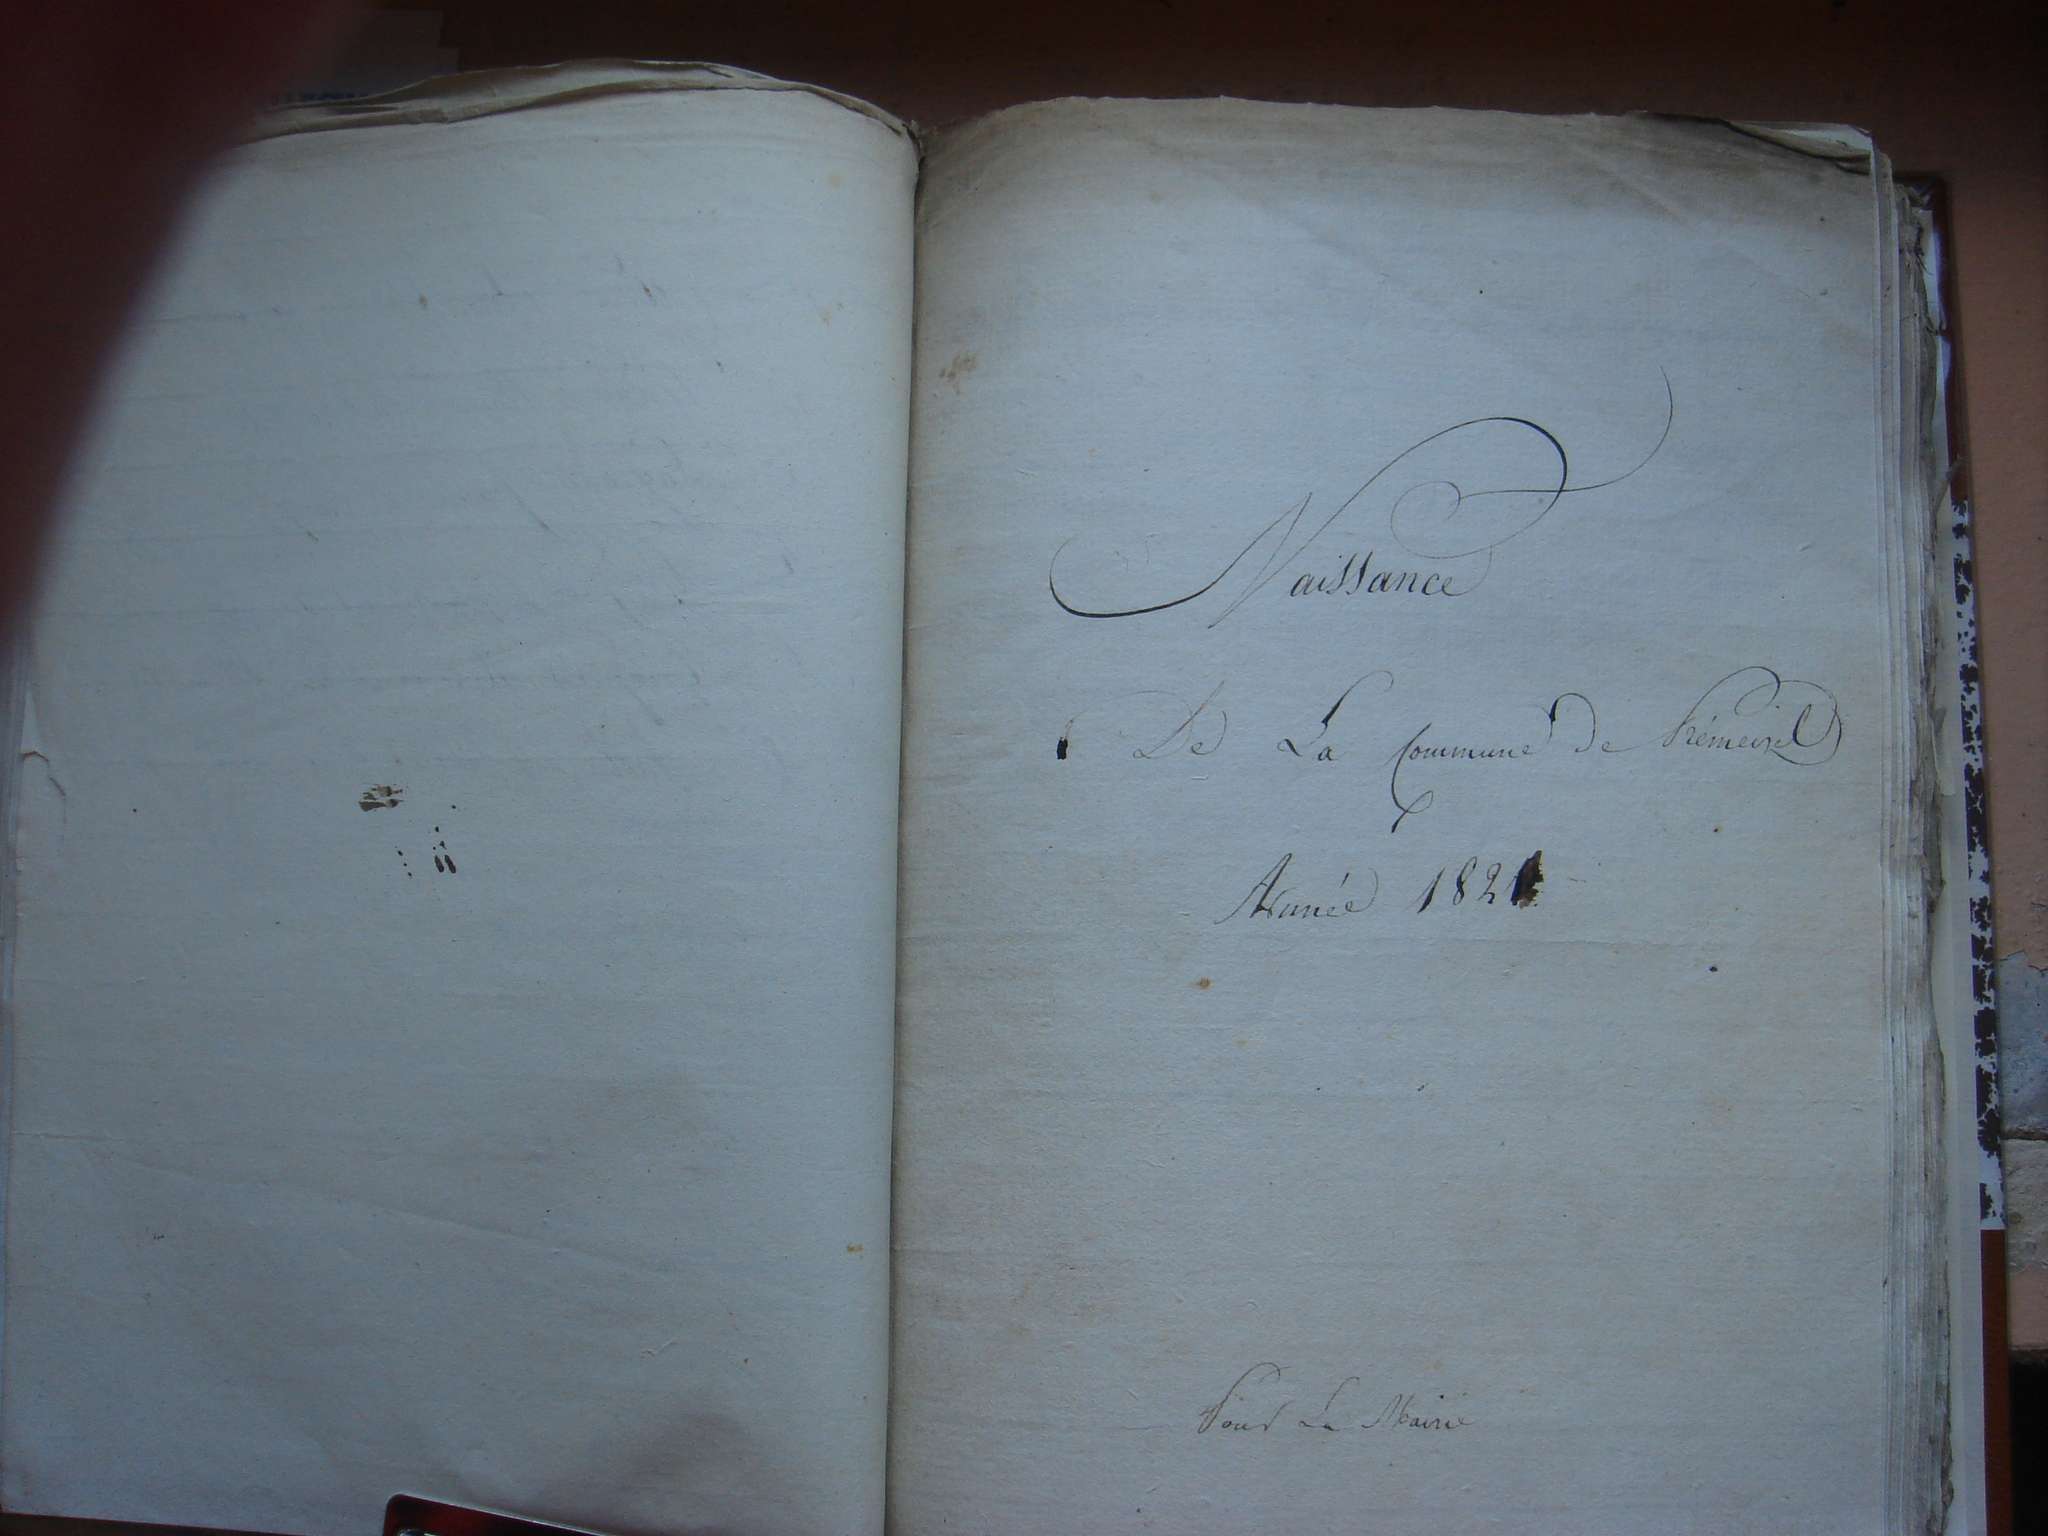 Naissance
De La Commune de
Année 1821
Pour La Mairie